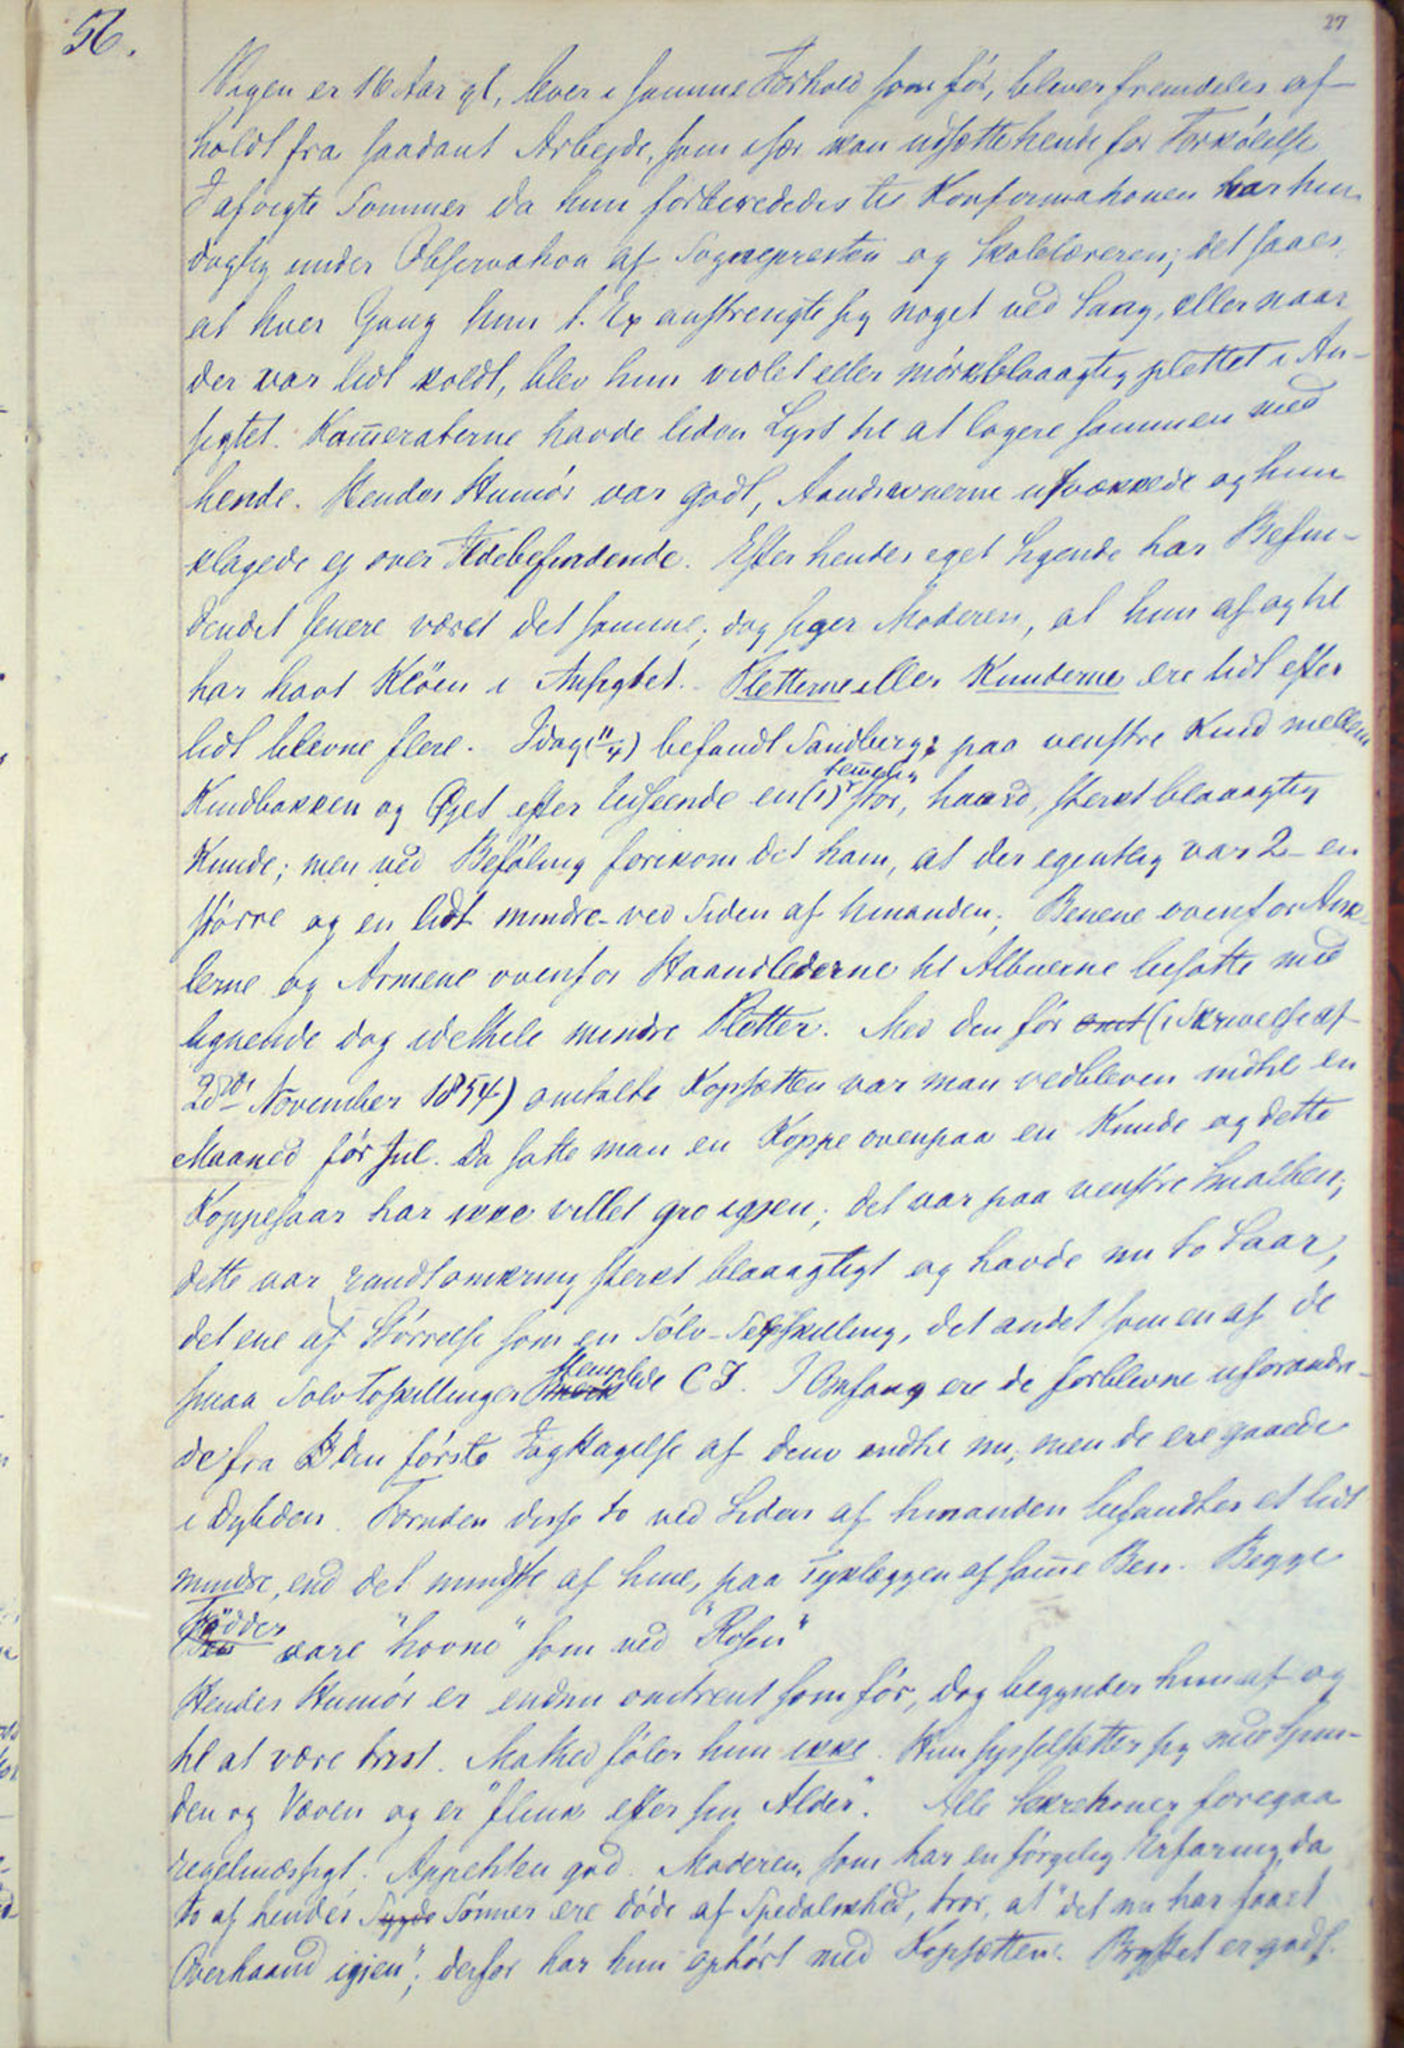 56.
27
Pigen er 16 Aar gl, lever i samme Forhold som før, bliver fremdeles af-
holdt fra saadant Arbejde, som især kan udsætte hende for Forkølelse
I afvigte Sommer da hun forberededes til Konfirmationen var hun
daglig under Observation af Sognepresten og Skolelæreren; det saaes,
at hver Gang hun t. Ex anstrengte sig noget ved Sang, eller naar
der var lidt koldt, blev hun violet eller mörkblaaagtig plettet i An-
sigtet. Kameraterne havde liden Lyst til at logere sammen med
hende. Hendes Humör var godt, Aandsevnerne usvækkede og hun
klagede ej over Ildebefindende. Efter hendes eget Sigende har Befin-
dendet senere været det samme; dog siger Moderen, at hun af og til
har havt Klöen i Ansigtet. Pletterne eller Knuderne ere lidt efter
lidt blevne flere. Idag (11/4) befandt Sandberg: paa venstre Kind mellem
Kindbakken og Øget efter Udseende en (1) temelig stor, haard, sterkt blaaagtig
Knude; men ved Befóling forekom det ham, at der egentlig var 2 - en
större og en lidt mindre - ved Siden af hinanden; Benene ovenfor Ank-
lerne og Armene ovenfor Haandlederne til Albuerne besatte med
lignende dog idethele mindre Pletter. Med den för omt (i Skrivelse af
28de November 1854) omtalte Kopsætten var man vedbleven indtil en
Maaned för Jul. Da satte man en Koppe ovenpaa en Knude og dette
Koppesaar har ikke villet gro igjen; det var paa venstre Smalben;
dette var rundtomkring sterkt blaaagtigt og havde nu to Saar,
det ene af Störrelse som en Sölv-Sexskilling, det andet som en af de
smaa Sölv Toskillinger merk stemplede C J. I Omfang ere de forblevne uforandre-
de fra den förste Iagttagelse af dem indtil nu, men de ere gaaede
i Dybden. Foruden disse to ved Siden af hinanden befandtes et lidt
mindre, end det mindste af hine, paa Tyklæggen af same Ben. Begge
Ben Födder vare "hovne" som ved "Rosen"
Hendes Humör er endnu omtrent som för, dog begynder hun af og
til at være trist. Mathed föler hun ikke. Hun sysselsætter sig med Spin-
den og Væven og er "flink efter sin Alder". Alle Sekretioner foregaa
regelmæssigt. Appetiten god. Moderen, som har en sörgelig Erfaring, da
to af hendes Sygde Sönner ere döde af Spedalskhed, tror, at "det nu har faaet
Overhaand igjen"; derfor har hun ophört med Kopsætten. Brystet er godt.